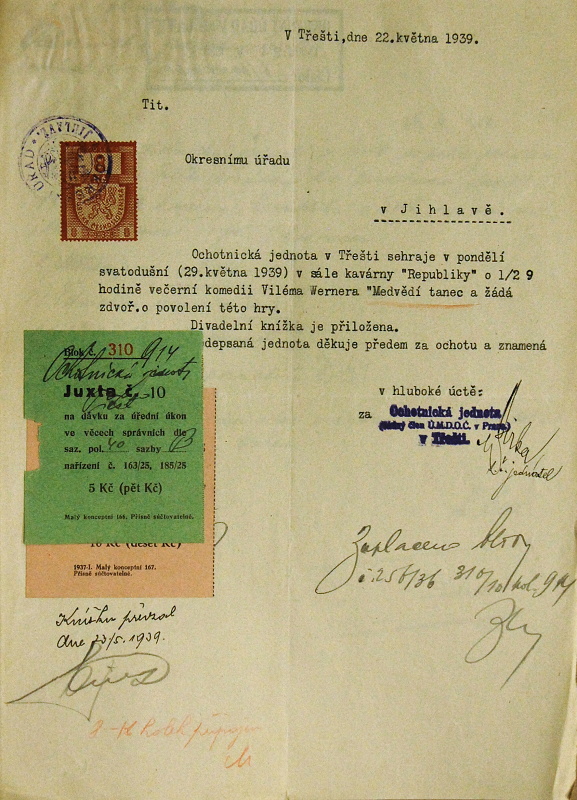 V Třešti,dne 22.května 1939.
Tit.
Okresnímu úřadu
v Jihlavě.
8
8 8
Ochotnická jednota v Třešti sehraje v pondělí
svatodušní (29.května 1939) v sále kavárny "Republiky" o 1/2 9
hodině večerní komedii Viléma Wernera "Medvědí tanec a žádá
zdvoř.o povolení této hry.
Divadelní knížka je přiložena.
depsaná jednota děkuje předem za ochotu a znamená
v hluboké úctě:
za
Ochotnická jednota
(řádný člen Ú.M.D.O.Č. v Praze)
v Třešti.
jednatel
Blok č. 310 914
Ochotnická jednota
Juxta č. 10
na dávku za úřední úkon
ve věcech správních dle
saz. pol. 40 sazby B
nařízení č. 163/25, 185/25
5 Kč (pět Kč)
Malý konceptní 168. Přísně súčtovatelné.
10 Kč (deset Kč)
1937-I. Malý konceptní 167.
Přísně súčtovatelné.
Zaplaceno
Knížku převzal
dne 23/5. 1939.